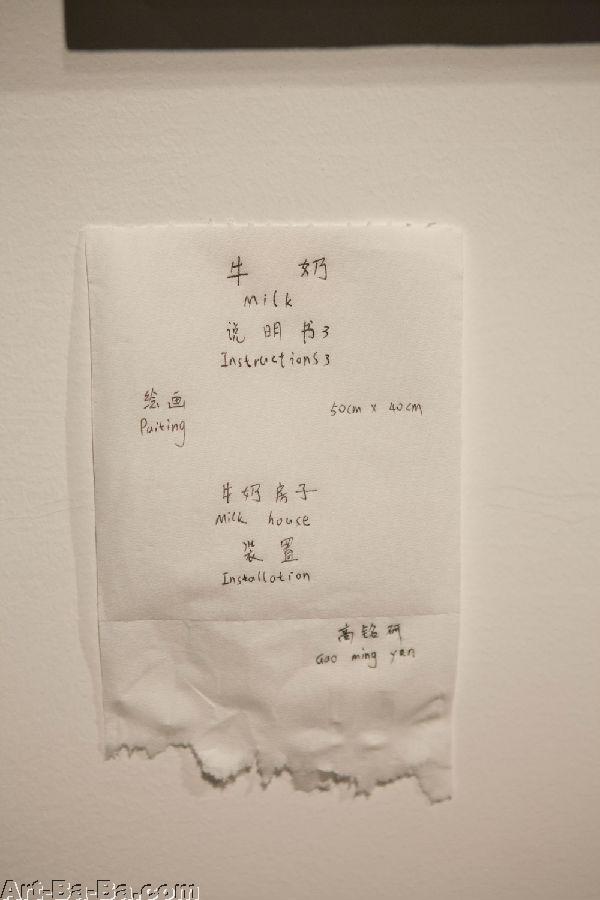 牛 奶
Milk
说明书3
Instructions3
绘画
50cm x 40cm
Paiting
牛奶房子
Milk house
装置
Installation
高铭研
Gao ming yan
Art-Ba-Ba.com